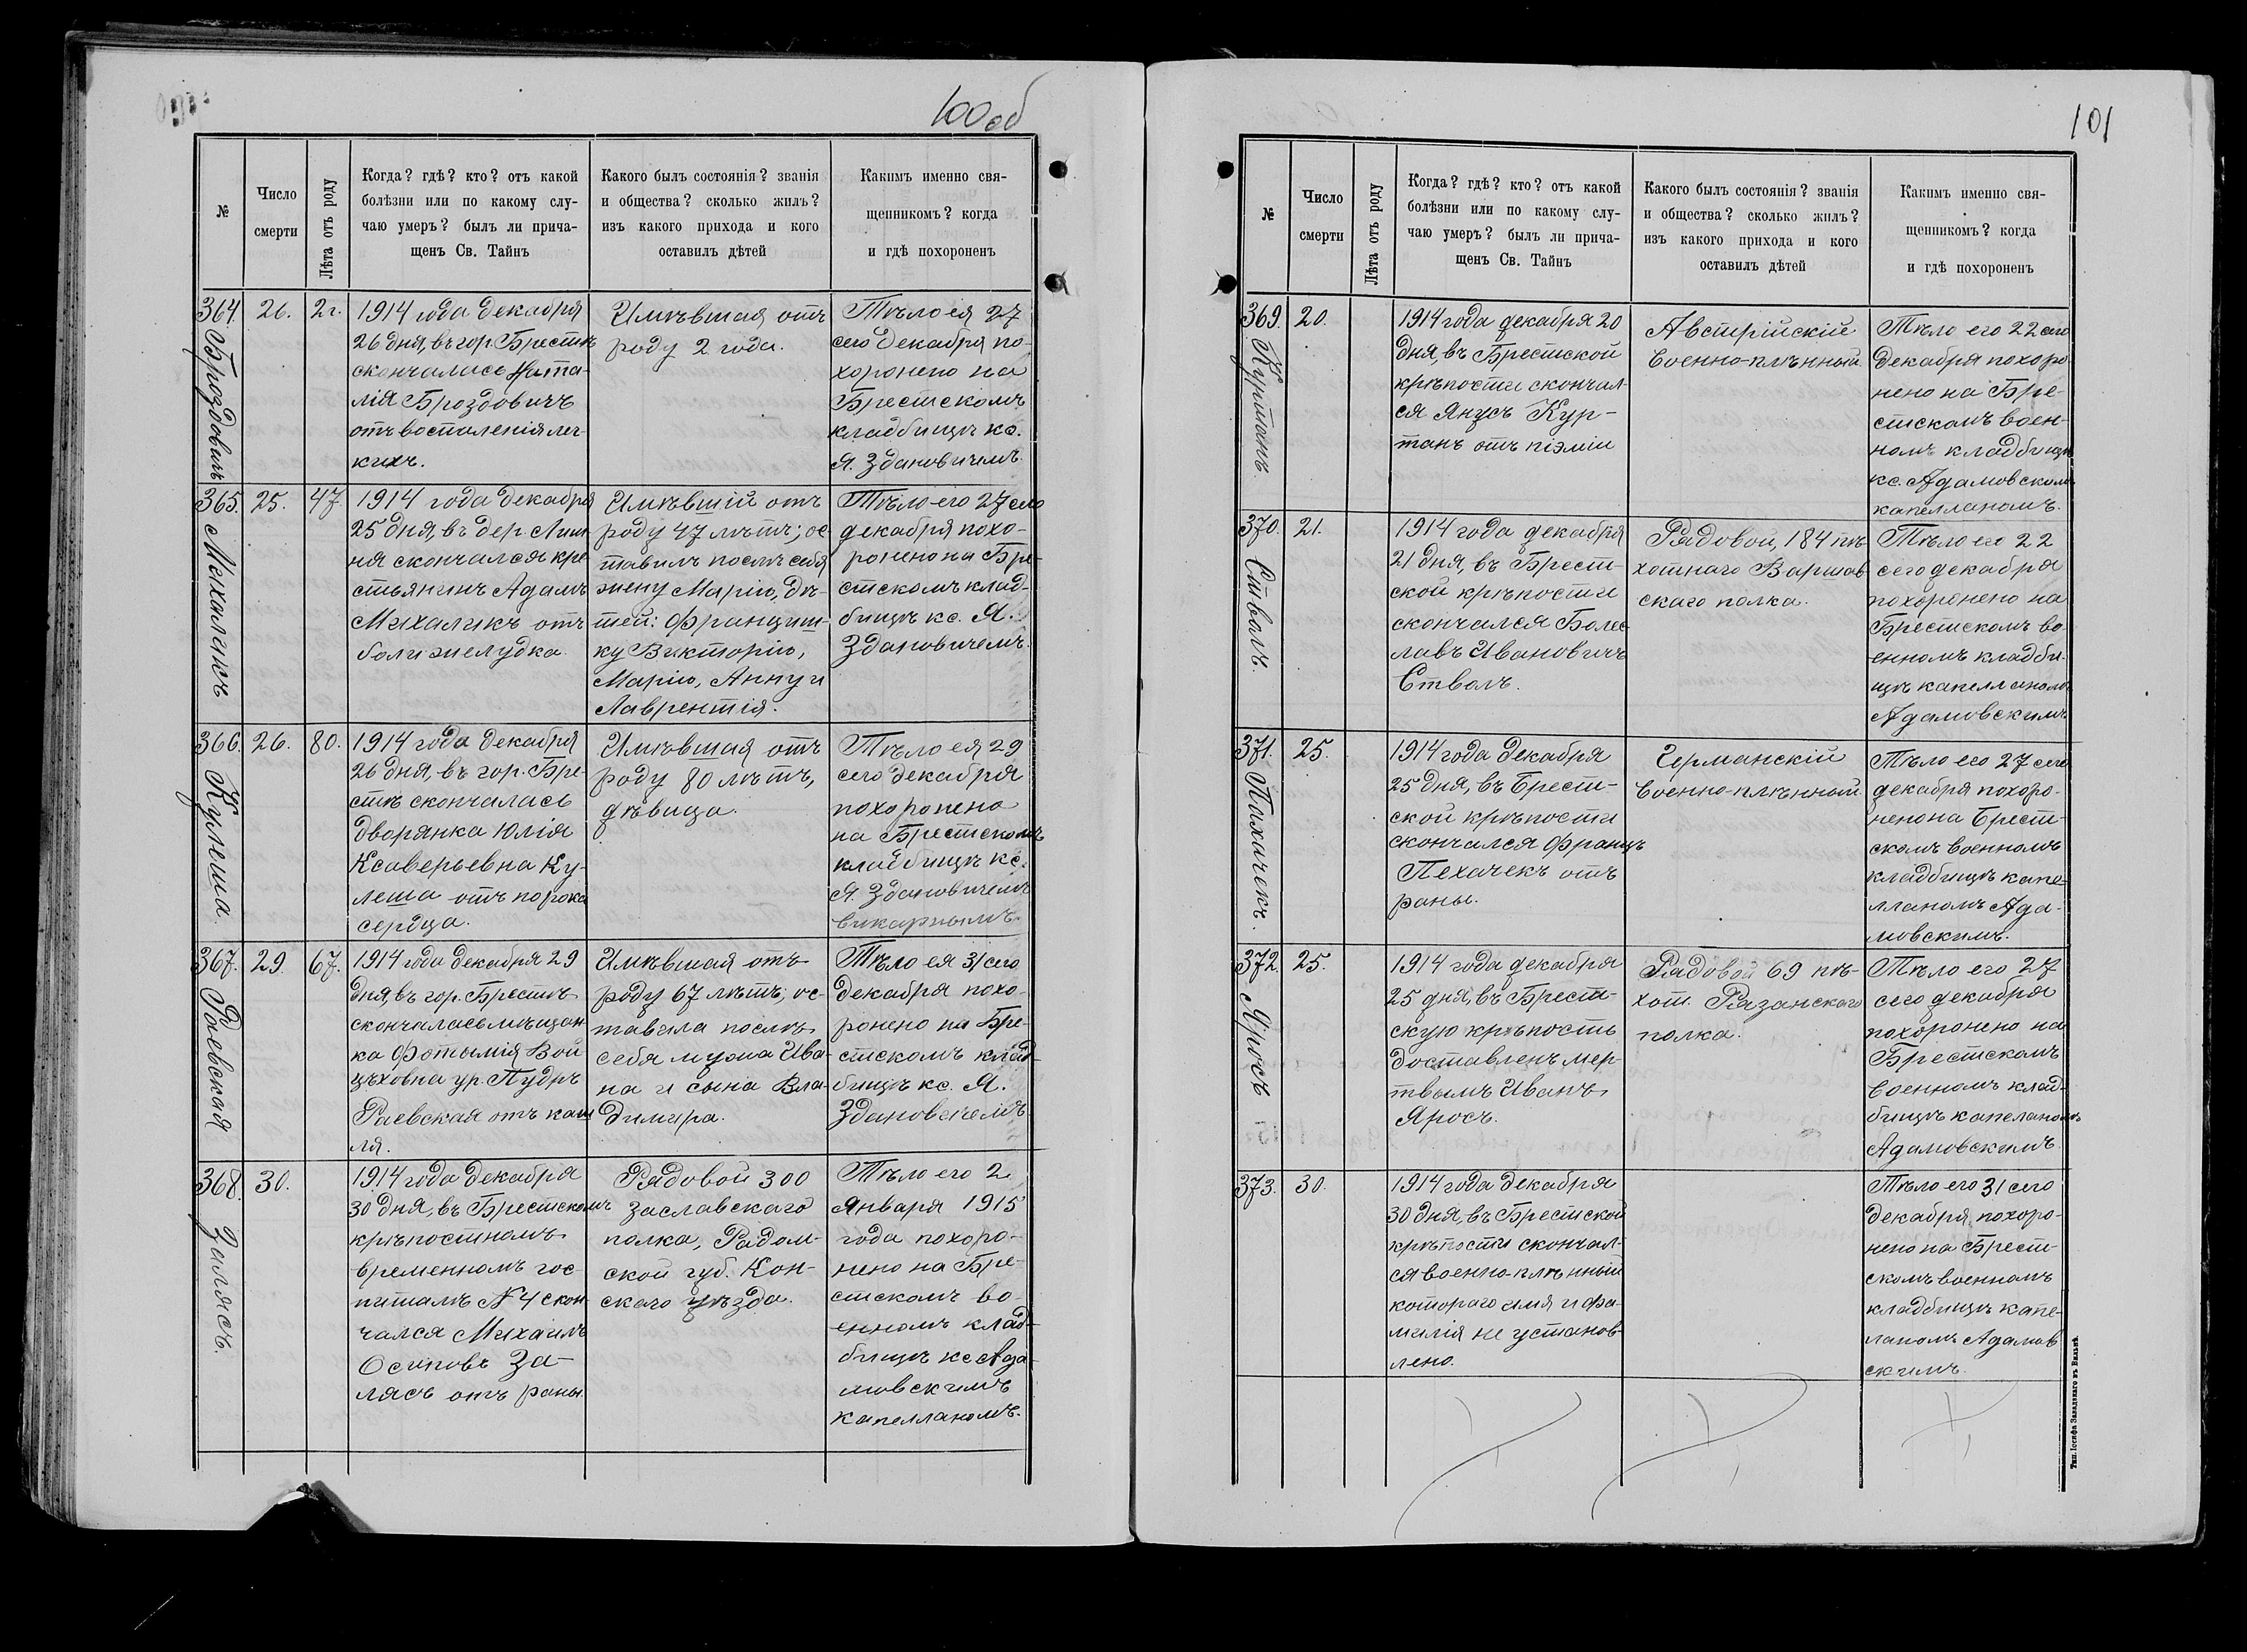 100 об
№
Число
смерти
Лѣта отъ роду
Когда? гдѣ? кто? отъ какой
болѣзни или по какому слу-
чаю умеръ? былъ ли прича-
щенъ Св. Таинъ
Какого былъ состоянія? званія
и общества? сколько жилъ?
изъ какого прихода и кого
оставилъ дѣтей
Какимъ именно свя-
щенникомъ? когда
и гдѣ похороненъ
364.
Броздовичъ
26.
2г.
1914 года декабря
26 дня, въ гор. Брестѣ
скончалась Ната-
лія Броздовичъ
отъ воспаленія лег-
кихъ.
Имѣвшая отъ
роду 2 года.
Тѣло ея 27
сего декабря по-
хоронено на
Брестскомъ
кладбищѣ кс.
Я. Здановичемъ.
365.
Михаликъ
25.
47.
1914 года декабря
25 дня, въ дер.
ня скончался кре-
стьянинъ Адамъ
Михаликъ отъ
боли желудка.
Имѣвшій отъ
роду 47 лѣтъ; ос-
тавилъ послѣ себя
жену Марію, дѣ-
тей: Франциш-
ку Викторію,
Марію, Анну и
Лаврентія.
Тѣло его 27 сего
декабря похо-
ронено на Бре-
стскомъ клад-
бищѣ кс. Я.
Здановичемъ.
366.
Кулеша
26.
80.
1914 года декабря
26 дня, въ гор. Бре-
стѣ скончалась
дворянка Юлія
Ксаверьевна Ку-
леша отъ порока
сердца.
Имѣвшая отъ
роду 80 лѣтъ,
дѣвица.
Тѣло ея 29
сего декабря
похоронено
на Брестскомъ
кладбищѣ кс.
Я. Здановичемъ
викарнымъ.
367.
Раевская
29.
67.
1914 года декабря 29
дня, въ гор. Брестѣ
скончалась мѣщан-
ка Фотымія Вой
цѣховна ур. Пудръ
Раевская отъ каш
ля.
Имѣвшая отъ
роду 67 лѣтъ; ос-
тавила послѣ
себя мужа Ива-
на и сына Вла-
димира.
Тѣло ея 31 сего
декабря похо-
ронено на Бре-
стскомъ клад-
бищѣ кс. Я.
Здановичемъ
368.
Залясъ.
30.
1914 года декабря
30 дня, въ Брестскомъ
крѣпостномъ
временномъ гос-
питалѣ № 4 скон-
чался Михаилъ
Осиповъ За-
лясъ отъ раны
Рядовой 300
Заславскаго
полка, Радом-
ской губ. Кон-
скаго уѣзда.
Тѣло его 2
Января 1915
года похоро-
нено на Бре-
стскомъ во-
енномъ клад-
бищѣ кс Ада-
мовскимъ
капелланомъ.
101
№
Число
смерти
Лѣта отъ роду
Когда? гдѣ? кто? отъ какой
болѣзни или по какому слу-
чаю умеръ? былъ ли прича-
щенъ Св. Таинъ
Какого былъ состоянія? званія
и общества? сколько жилъ?
изъ какого прихода и кого
оставилъ дѣтей
Какимъ именно свя-
щенникомъ? когда
и гдѣ похороненъ
369.
Куртанъ.
20.
1914 года декабря 20
дня, въ Брестской
крѣпости скончал-
ся Янусъ Кур-
танъ отъ піэміи
Австрійскій
военно-плѣнный
Тѣло его 22 сего
декабря похоро-
нено на Бре-
стскомъ воен-
номъ кладбищѣ
кс. Адамовскимъ
капелланомъ.
370.
Стволъ.
21.
1914 года декабря
21 дня, въ Брест-
ской крѣпости
скончался Болес
лавъ Ивановичъ
Стволъ.
Рядовой, 184 пѣ-
хотнаго Варшав
скаго полка.
Тѣло его 22
сего декабря
похоронено на
Брестскомъ во-
енномъ кладби-
щѣ капелланомъ
Адамовскимъ
371.
Пихачекъ.
25.
1914 года декабря
25 дня, въ Брест-
ской крѣпости
скончался Францъ
Пехачекъ отъ
раны.
Германскій
военно-плѣнный.
Тѣло его 27 сего
декабря похоро-
нено на Брест-
скомъ военномъ
кладбищѣ капе-
лланомъ Ада-
мовскимъ.
372.
Яросъ
25.
1914 года декабря
25 дня, въ Брест-
скую крѣпость
доставленъ мер-
твымъ Иванъ
Яросъ.
Рядовой 69 пѣ-
хот. Рязанскаго
полка.
Тѣло его 27
сего декабря
похоронено на
Брестскомъ
военномъ клад-
бищѣ капеланомъ
Адамовскимъ.
373.
30.
1914 года декабря
30 дня, въ Брестской
крѣпости скончал-
ся военно-плѣнный
котораго имя и фа-
милія не установ-
лено.
Тѣло его 31 сего
декабря похоро-
нено на Брест-
скомъ военномъ
кладбищѣ капе-
ланомъ Адамов
скимъ.
Тип. Іосифа Завадзкаго въ Вильнѣ.